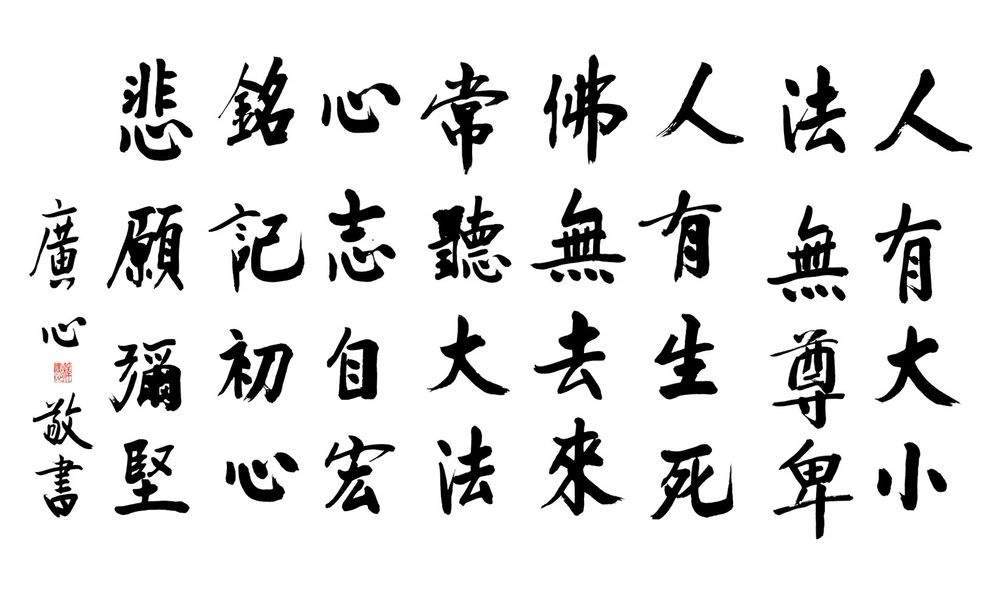 人有大小
法無尊卑
人有生死
佛無去來
常聽大法
心志自宏
銘記初心
悲願彌堅
廣心敬書